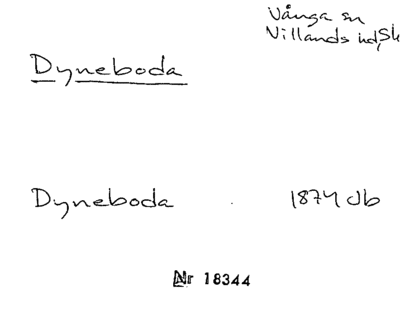 Vånga sn
Villands hd, Sk
Dyneboda
Dyneboda 1874 Jb
Nr 18344